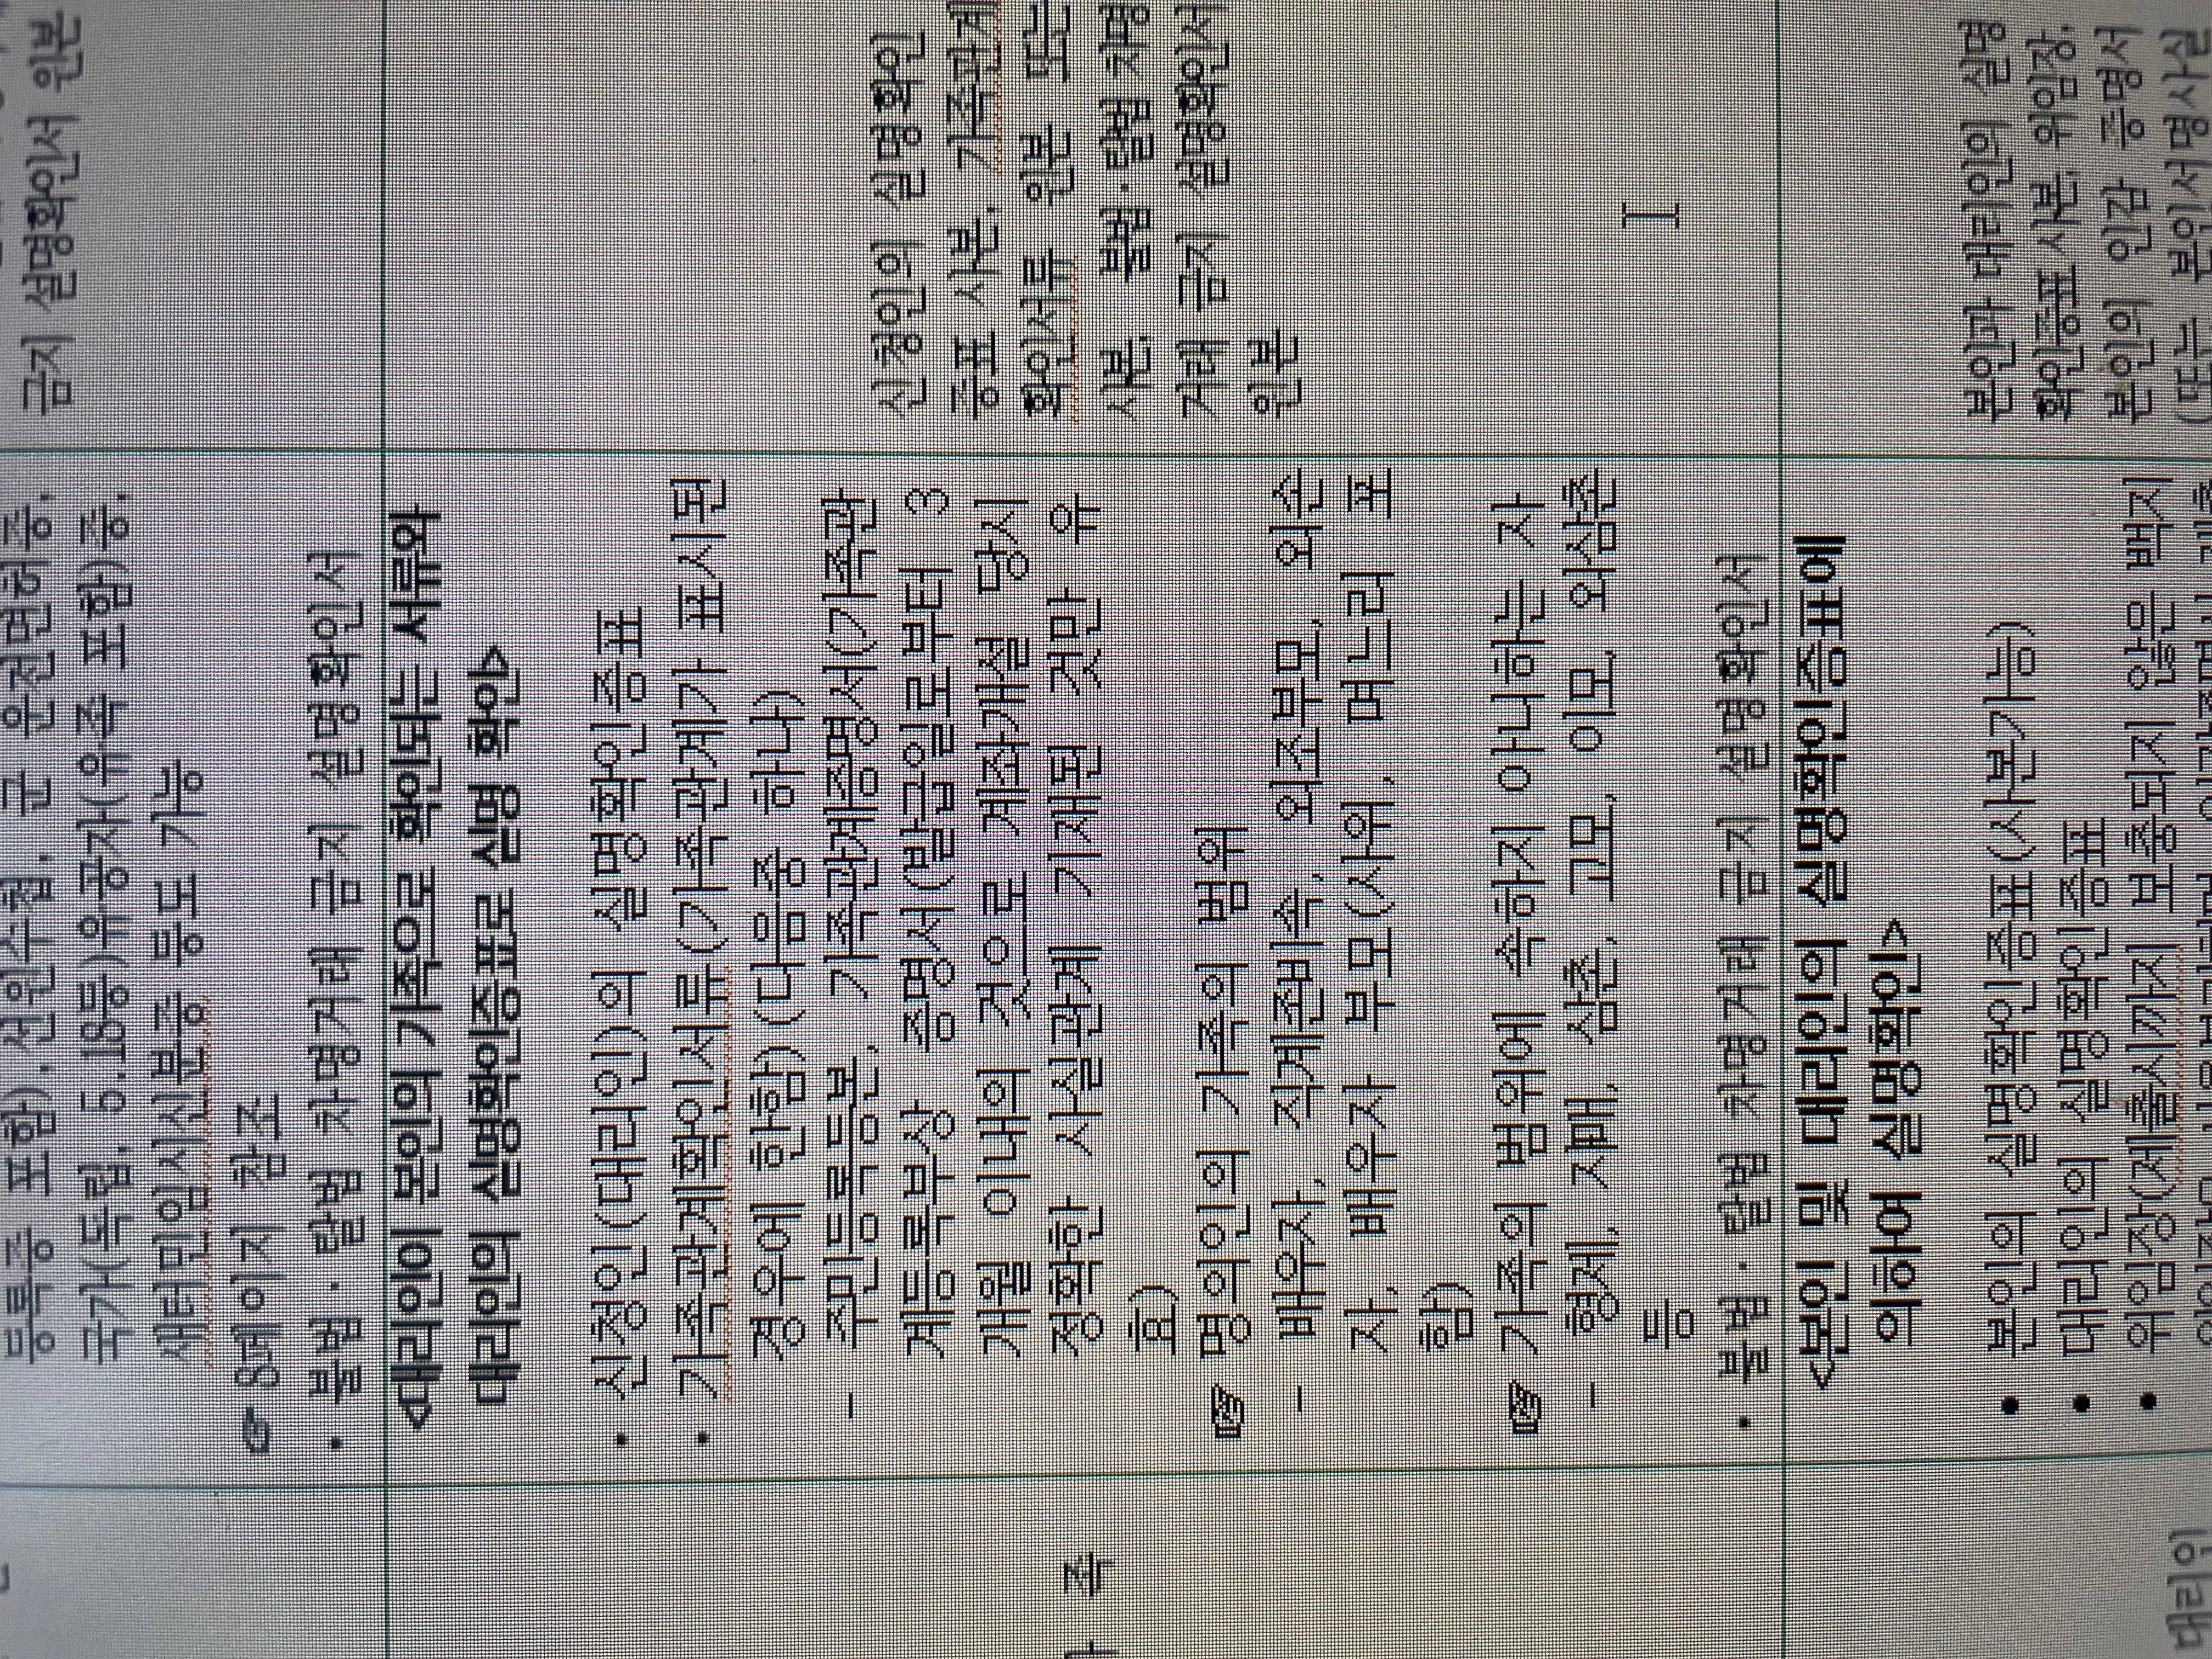 등록증 포함). 선원수첩. 군 운전면허증.
국가(독립, 5.18등)유공자(유족 포함)증.
새터민임시신분증 등도 가능
☞ 8페이지 참조
• 불법·탈법 차명거래 금지 설명확인서
금지 설명확인서 원본
가 족
<대리인이 본인의 가족으로 확인되는 서류와
대리인의 실명확인증표로 실명 확인>
• 신청인(대리인)의 실명확인증표
• 가족관계확인서류(가족관계가 표시된
경우에 한함) (다음중 하나)
– 주민등록등본, 가족관계증명서(가족관
계등록부상 증명서(발급일로부터 3
개월 이내의 것으로 계좌개설 당시
정확한 사실관계 기재된 것만 유
효)
☞ 명의인의 가족의 범위
– 배우자, 직계존비속, 외조부모, 외손
자, 배우자 부모(사위, 며느리 포
함)
☞ 가족의 범위에 속하지 아니하는 자
– 형제, 자매, 삼촌, 고모, 이모, 외삼촌
등
• 불법·탈법 차명거래 금지 설명확인서
신청인의 실명확인
증표 사본, 가족관계
확인서류 원본 또는
사본, 불법·탈법 차명
거래 금지 설명확인서
원본
대리인
<본인 및 대리인의 실명확인증표에
의하여 실명확인>
• 본인의 실명확인증표(사본가능)
• 대리인의 실명확인증표
• 위임장(제출시까지 보충되지 않은 백지
본인과 대리인의 실명
확인증표 사본, 위임장,
본인의 인감 증명서
(또는 본인서명사실